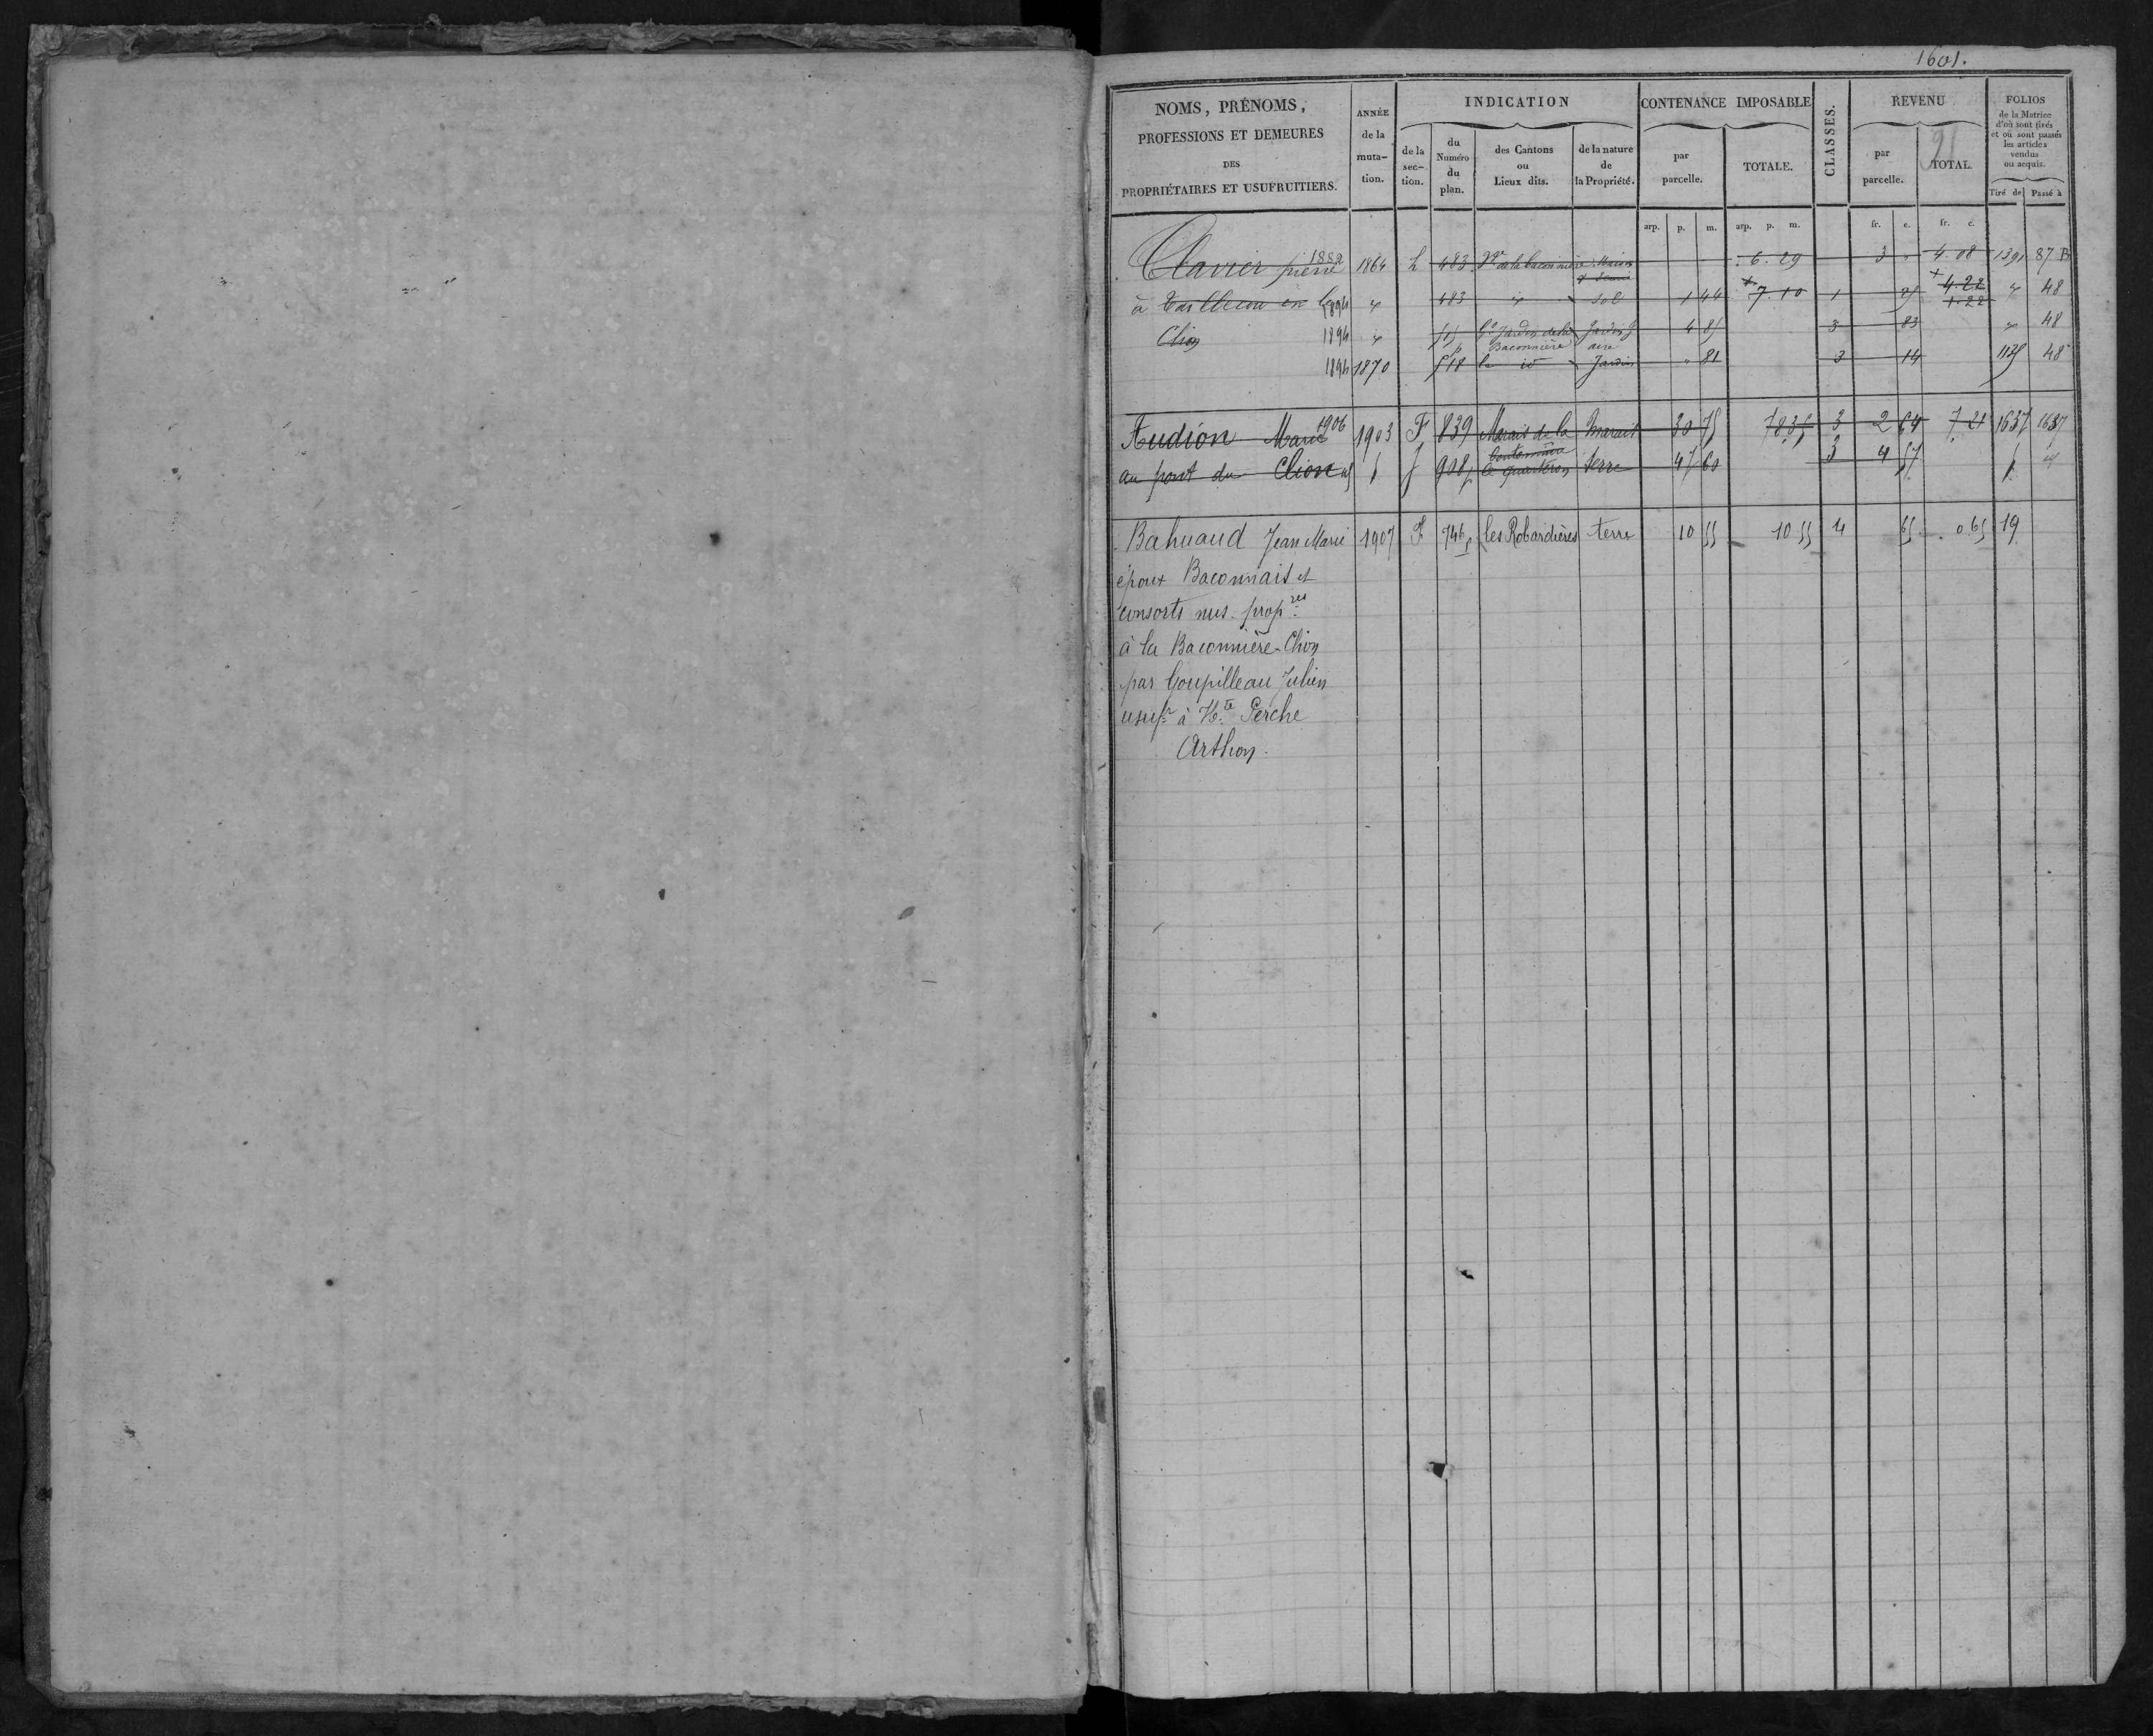 1601.
NOMS, PRÉNOMS, PROFESSIONS ET DEMEURES DES PROPRIÉTAIRES ET USUFRUITIERS.
ANNÉE de la muta-tion.
INDICATION
de la sec-tion.
du Numéro du plan.
des Cantons ou Lieux dits.
de la nature de la Propriété.
CONTENANCE IMPOSABLE
par parcelle.
TOTALE.
CLASSES.
REVENU
par parcelle.
TOTAL.
FOLIOS de la Matrice d'où sont tirés et où sont passés les articles vendus ou acquis.
Tiré de Passé à
arp. p. m. arp. p. m. fr. c. fr. c.
Clavier pierre 1882 1864 h 483 de la baconnière Maison 6.29 3 " 4.08 1391 87 B
à en 1894 483 Sol 1 44 7.10 1 4.22 48
1.22
Clion 1894 Jardin de la Jardin 4 85 3 83 48
Baconnière
1894 1870 518 id Jardin " 81 3 14 1125 48
Audion Marie 1906 1903 F 839 Marais de la marais 30 75 78 35 3 2 64 7 21 1637 1637
au pont du Clion 908 le quarteron terre 47 60 3 4 57
Bahuaud Jean Marie 1907 F 746 les Robardières terre 10 55 10 55 4 65 0 65 19
époux Baconnais et
consorts nus-prop.res
à la Baconnière-Clion
par Goupilleau Julien
usuf.r à H.te Perche
Arthon.